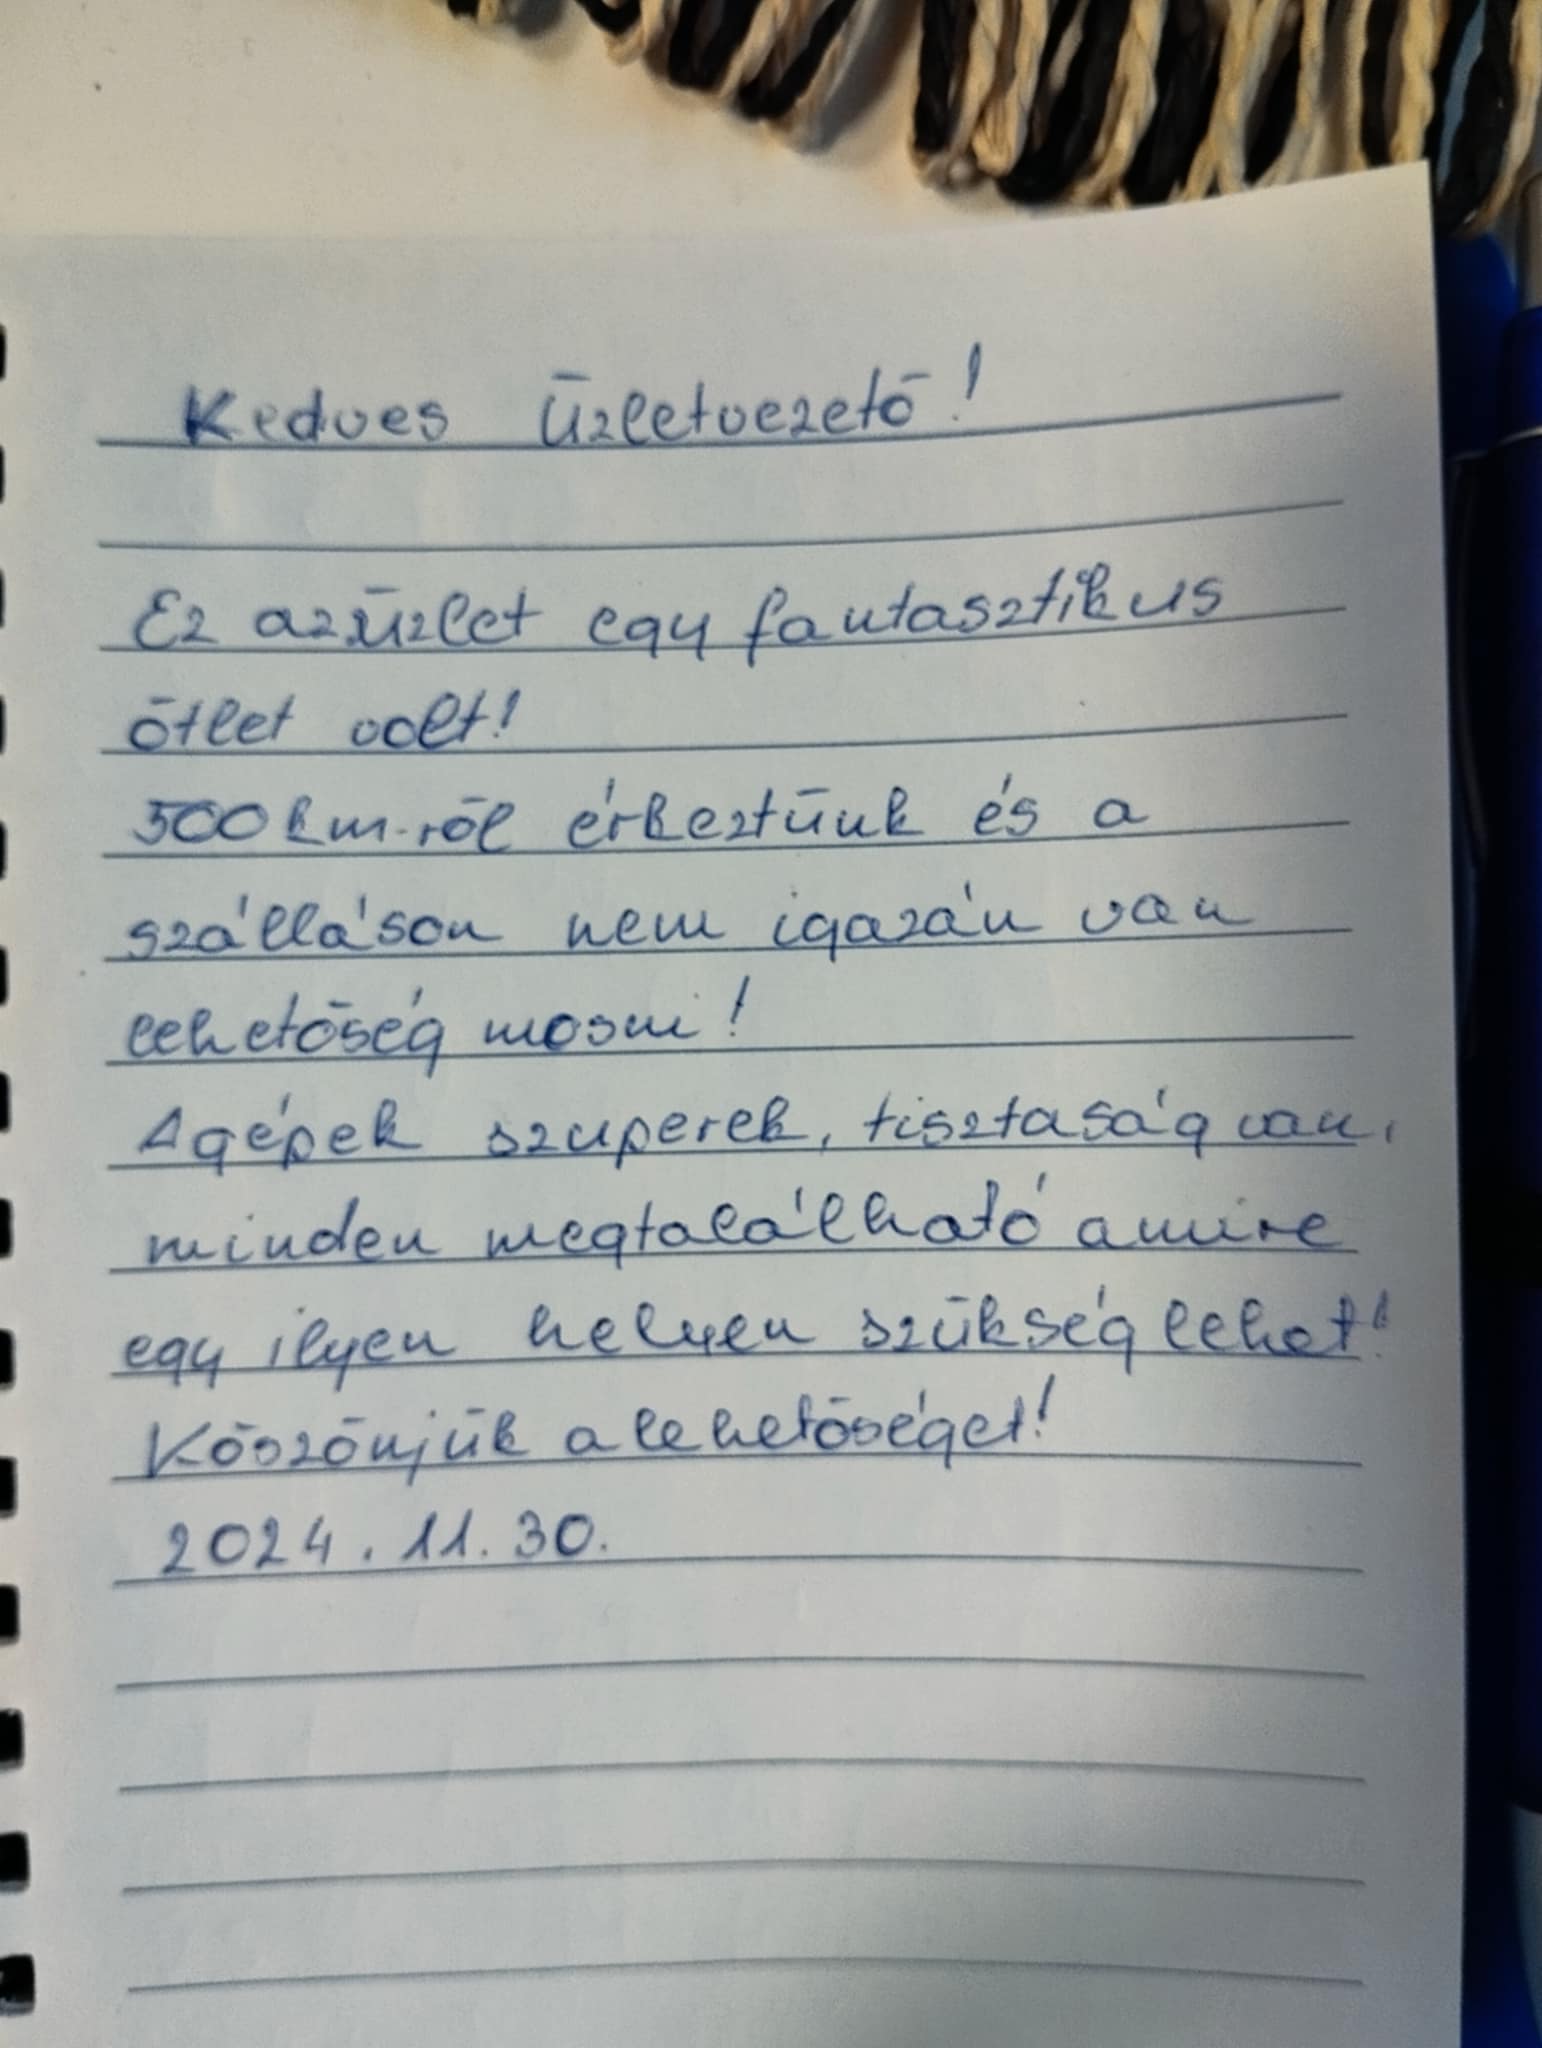 Kedves Üzletvezető!
Ez az üzlet egy fantasztikus
ötlet volt!
500 km-ről érkeztünk és a
szálláson nem igazán van
lehetőség mosni!
A gépek szuperek, tisztaság van,
minden megtalálható amire
egy ilyen helyen szükség lehet!
Köszönjük a lehetőséget!
2024. 11. 30.